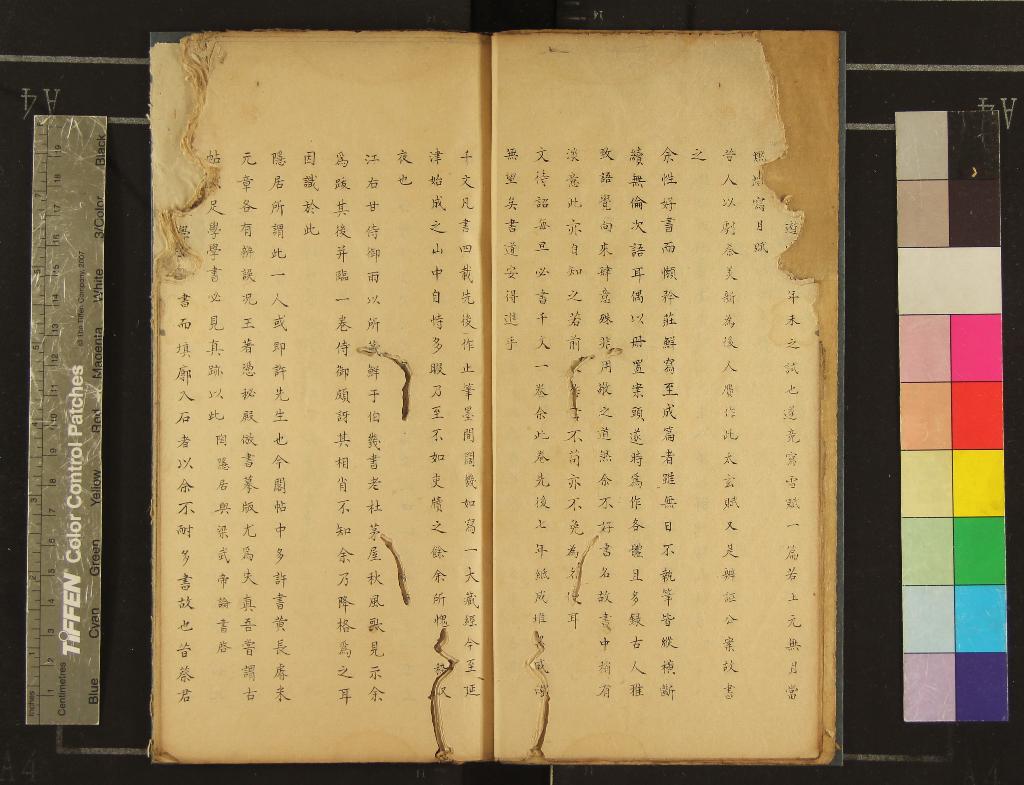 年未之試也遂竟寫雪賦一篇若上元無月當
寫月賦
昔人以劇秦美新為後人贗作此太玄賦又是辨誣公案故書
之
余性好書而懶矜莊鮮寫至成篇者雖無日不執筆皆縱橫斷
續無倫次語耳偶以冊置案頭遂時為作各體且多錄古人雅
致語覺向來肆意殊非用敬之道然余不好書名故書中稍有
淡意此亦自知之若前不苟亦不免為名使耳
文待詔每旦必書千文一卷余此卷先後七年紙成堆
無望矣書道安得進乎
千文凡書四載先後作止筆墨間闊幾如寫一大藏經今至延
津始成之山中自恃多暇乃至不如吏牘之餘余所愧
夜也
江右甘侍御雨以所藏鮮于伯幾書老杜茅屋秋風歌見示余
為跋其後并臨一卷侍御頗訝其相肖不知余乃降格為之耳
因識於此
隱居所謂此一人或即許先生也今閣帖中多許書黃長睿米
元章各有辨誤況王著憑秘殿倣書摹版尤為失真吾嘗謂古
帖不足學學書必見真跡以此 陶隱居與梁武帝論書啓
書而填廓入石者以余不耐多書故也昔蔡君
Blue Cyan Green Yellow Red Magenta White 3/Color Black
TIFFEN Color Control Patches
© The Tiffen Company, 2007
Centimetres
Inches
A4
A4